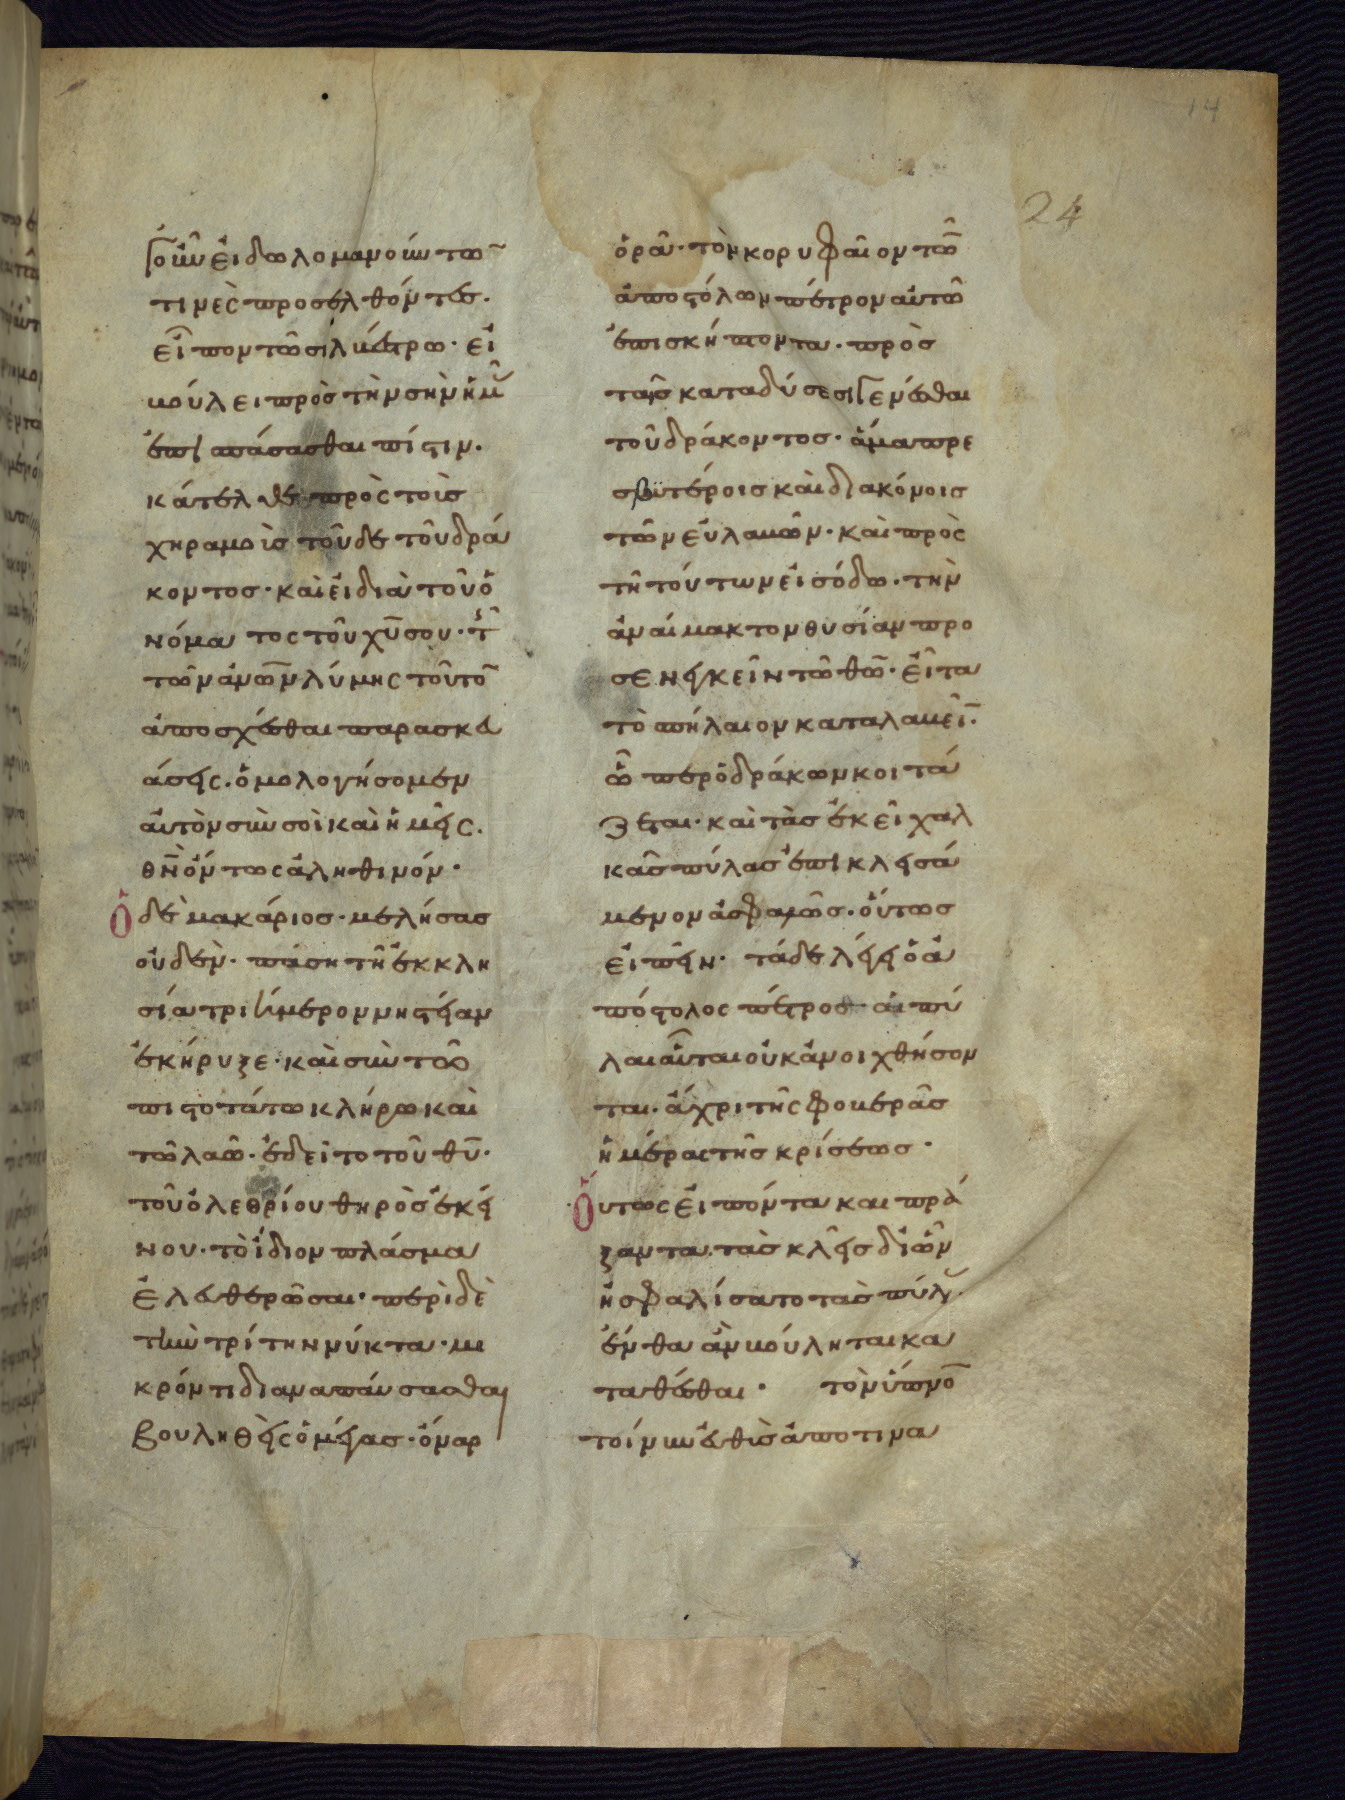 14
24
γοῦν εἰδωλομανούντῶ
τινὲς προσελθόντες.
εἶπον τῶ σιλβέστρω· εἰ
βούλει πρὸς τὴν σὴν ἡμᾶς
ἐπισπάσασθαι πίστιν.
κάτελθε πρὸς τοῖς
χηραμοῖς τοῦδε τοῦ δρά
κοντος· καὶ εἰ διὰ τοῦ ὀ
νόματος τοῦ χῡ σου· τῆς
τῶν ἀνῶ̄ν λύμης τοῦτο͂
ἀποσχέσθαι παρασκευ
άσεις. ὁμολογήσομεν
αὐτὸν σὺν σοὶ καὶ ἡμεῖς.
θν̄ ὄντως ἀληθινόν·
Ὁ δὲ μακάριος· μελήσας
οὐδέν· πάση τῆ ἐκκλη
σία τριήμερον νηστείαν
ἐκήρυξε· καὶ σὺν τῶ
πιστοτάτω κλήρω καὶ
τῶ λαῶ· ἐδεῖτο τοῦ θῡ·
τοῦ ὀλεθρίου θηρὸς ἐκεί
νου· τὸ ἴδιον πλάσμα
ἐλευθερῶσαι· περὶ δὲ
τὴν τρίτην νύκτα· μι
κρόν τι διαναπαύσασθαι
βουληθεὶς ὁ μέγας· ὄναρ
ὁρᾶ· τὸν κορυφαῖον τῶ͂
ἀποστόλων πέτρον αὐτῶ
ἐπισκήπτοντα· πρὸς
ταῖς καταδύσεσι γενέσθαι
τοῦ δράκοντος· ἅμα πρε
σβυτέροις καὶ διακόνοις
τῶν εὐλαβῶν· καὶ πρὸς
τῆ τούτων εἰσόδω· τὴν
ἀναίμακτον θυσίαν προ
σενεγκεῖν τῶ θῶ̄· εἶτα
τὸ σπήλαιον καταλαβεῖ͂.
ὧ περ ὁ δράκων κοιτά
ζεται· καὶ τὰς ἐκεῖ χαλ
κᾶς πύλας ἐπικλεισά
μενον ἀσφαλῶς· οὕτως
εἰπεῖν· τάδε λέγει ὁ ἀ
πόστολος πέτρος· αἱ πύ
λαι αὗται οὐκ ἀνοιχθήσον
ται· ἄχρι τῆς φοβερᾶς
ἡμέρας τῆς κρίσεως·
Οὕτως εἰπόντα καὶ πρά
ξαντα. τὰς κλεῖς δι ὧν
ἠσφαλίσατο τὰς πύλας.
ἔνθα ἂν βούληται κα
ταθέσθαι· τὸν ὕπνο͂
τοίνυν εὐθὺς ἀποτινα